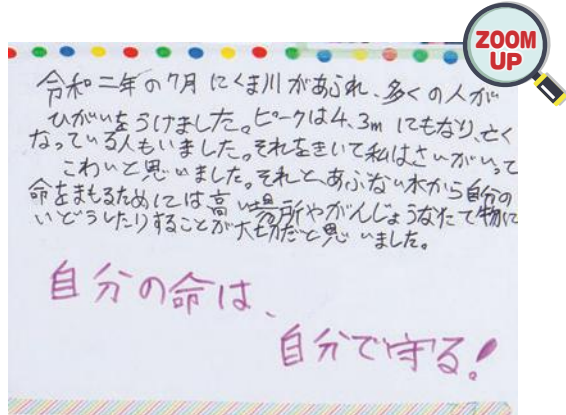 ZOOM
UP
令和二年の7月にくま川があふれ、多くの人が
ひがいをうけました。ピークは4.3mにもなり、亡く
なっている人もいました。それをきいて私はさいがいって
こわいと思いました。それと、あぶない水から自分の
命をまもるためには高い場所やがんじょうなたて物に
いどうしたりすることが大切だと思いました。
自分の命は、
自分で守る!